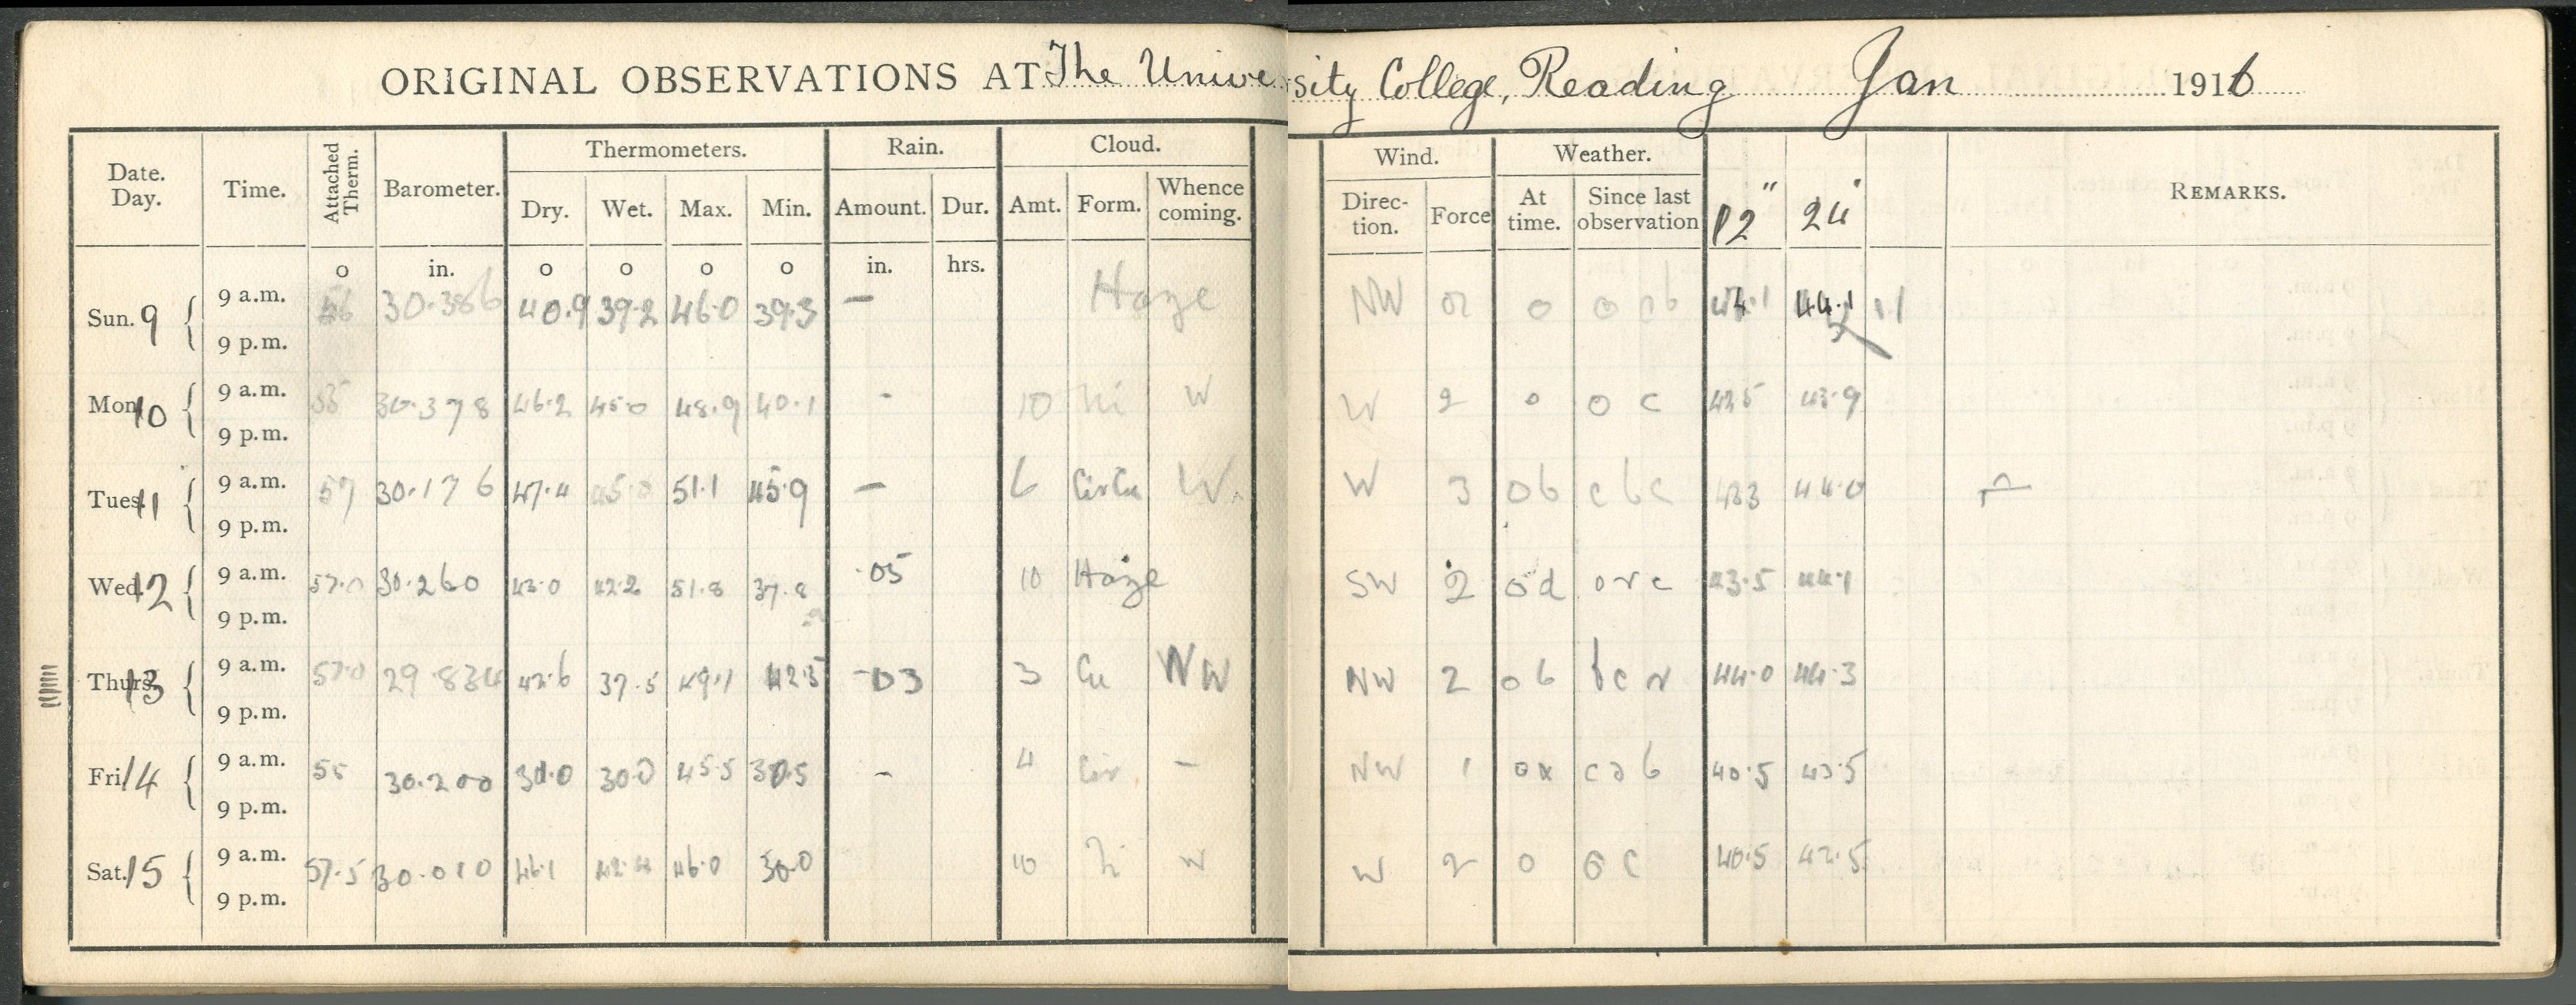 ORIGINAL OBSERVATIONS AT The University College, Reading Jan 1916
Date. Day. Time. Attached Therm. Barometer. Thermometers. Rain. Cloud. Wind. Weather. 12" 24" REMARKS.
Dry. Wet. Max. Min. Amount. Dur. Amt. Form. Whence coming. Direc-tion. Force At time. Since last observation
o in. o o o o in. hrs.
Sun. 9 9 a.m. 56 30.386 40.9 39.2 46.0 39.3 — Haze NW o o c b 44.1
9 p.m.
Mon 10 9 a.m. 55 30.378 46.2 45.0 48.9 40.1 - 10 W W 2 o o c 42.5 43.9
9 p.m.
Tues. 11 9 a.m. 57 30.176 47.4 45.0 51.1 45.9 — 6 CirCu W. W 3 ob c b c 43.3 44.0
9 p.m.
Wed. 12 9 a.m. 57.0 30.260 43.0 42.2 51.8 37.8 .05 10 Haze SW 2 od o r c 43.5 44.1
9 p.m.
Thurs. 13 9 a.m. 57.0 29.834 42.6 37.5 49.1 42.5 .03 3 Cu NW NW 2 o b b c r 44.0 44.3
9 p.m.
Fri 14 9 a.m. 55 30.200 30.0 45.5 30.5 - 4 Cir. — NW 1 ox c o b 40.5 43.5
9 p.m.
Sat. 15 9 a.m. 57.5 30.010 46.1 42.4 46.0 30.0 10 W W 2 o o c 40.5 42.5
9 p.m.